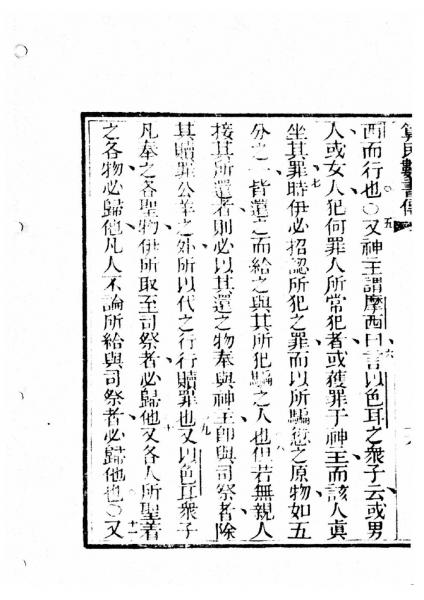 算民數書傳
西而行也○又神主謂摩西曰言以色耳之衆子云或男
人或女人犯何罪人所常犯者或獲罪于神主而該人真
坐其罪時伊必招認所犯之罪而以所騙之原物如五
分之一皆還之而給之與其所犯騙之人也但若無親人
接其所還者則必以其還之物奉與神主即與司祭者除
其贖罪公羊之外所以代之行行贖罪也又以色耳衆子
凡奉之各聖物伊所取至司祭者必歸他又各人所聖着
之各物必歸他凡人不論所給與司祭者必歸他也○又
五
六
七
八
九
十
十一